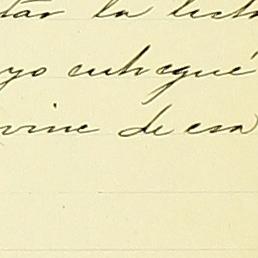 tar la lect
yo entregué
vine de esa